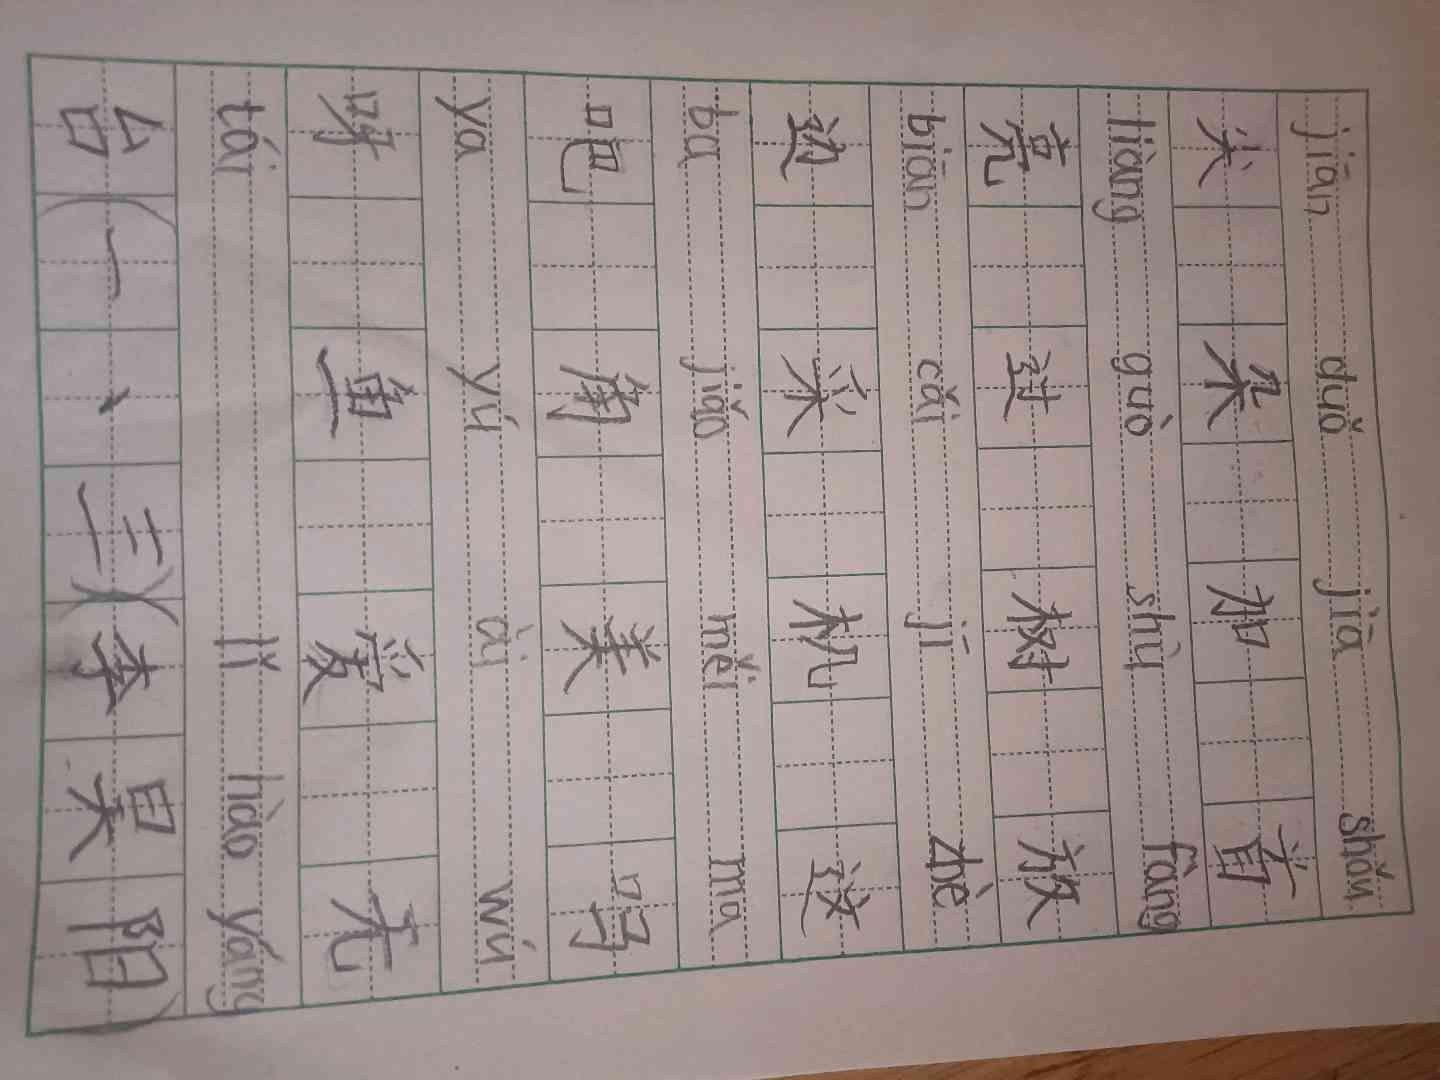 jiān duǒ jiā shǒu
尖 朵 加 首
liàng guò shù fàng
亮 过 树 放
biān cǎi jī zhè
边 采 机 这
ba jiǎo měi ma
吧 角 美 吗
ya yú ài wú
呀 鱼 爱 无
tái lǐ hào yáng
台(一、三)(李昊阳)